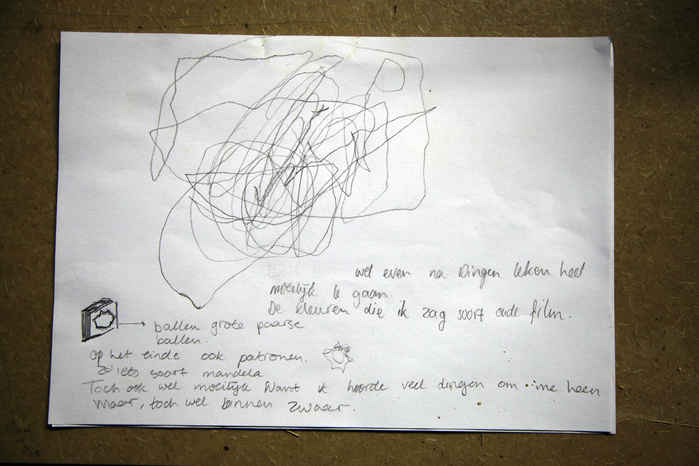 wel even na Dingen leken heel
moeilijk te gaan.
De kleuren die ik zag soort oude film.
ballen grote paarse
ballen.
op het einde ook patronen.
zoiets soort mandela
Toch ook wel moeilijk Want ik hoorde veel dingen om me heen
maar, toch wel binnen zwaar.